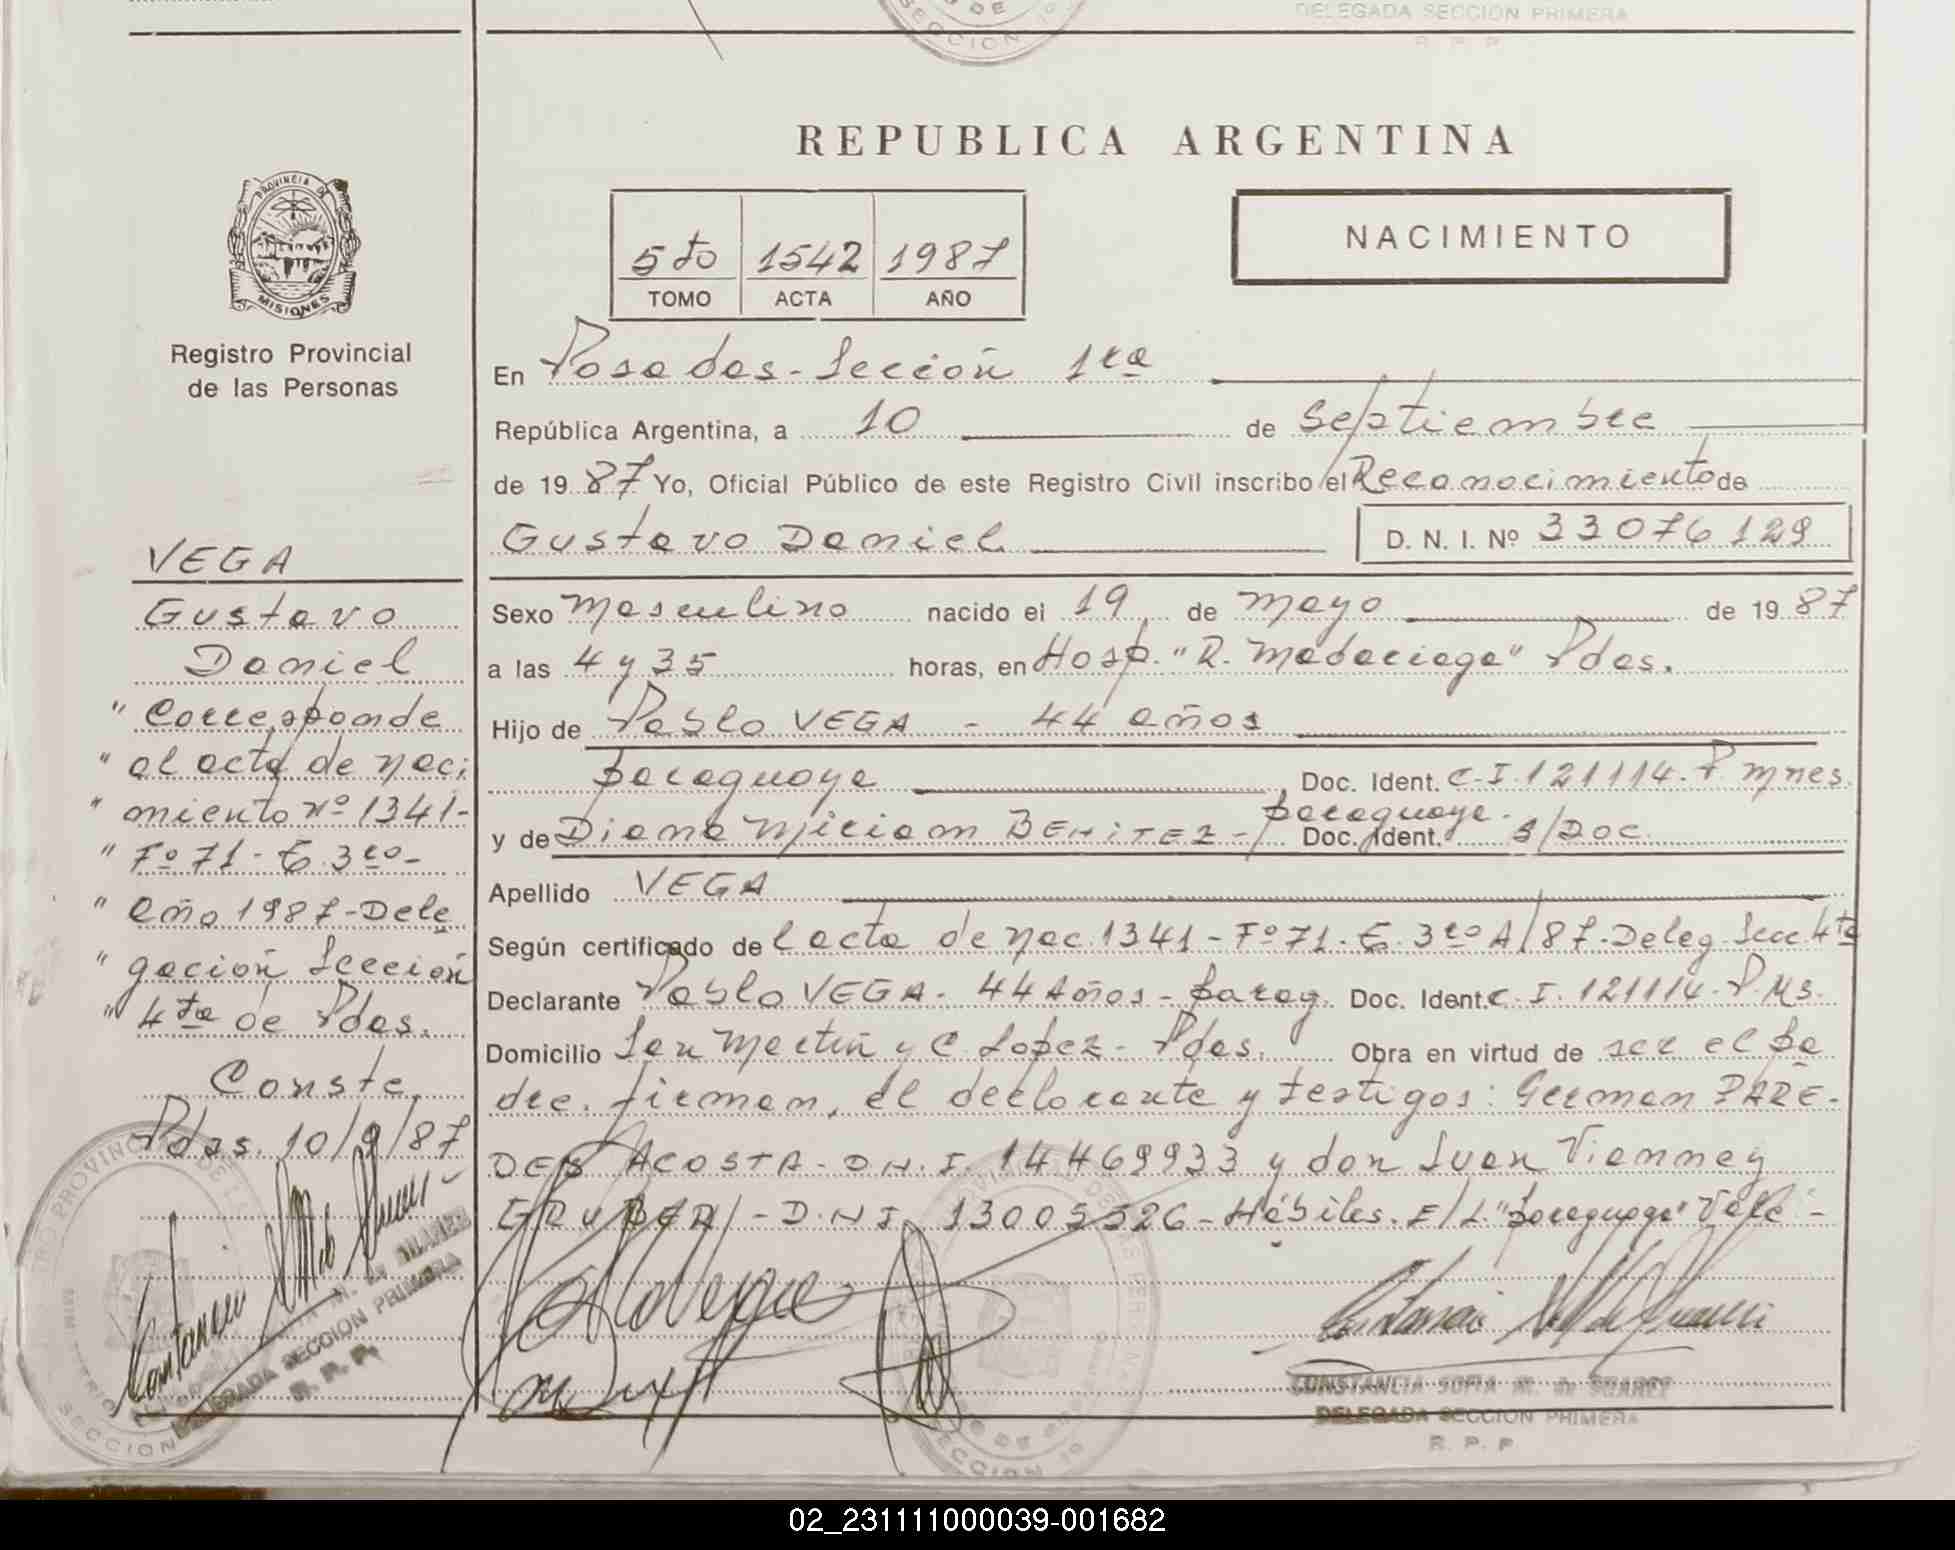 DELEGADA SECCION PRIMERA
R. P. P.
SECCION 1º
REPUBLICA ARGENTINA
NACIMIENTO
5to 1542 1987
TOMO ACTA AÑO
PROVINCIA DE
MISIONES
Registro Provincial
de las Personas
VEGA
Gustavo
Daniel
" Corresponde
" al acta de naci
" miento Nº 1341-
" Fº 71- T. 3ro-
" año 1987-Dele
" gación Sección
" 4ta de Pdas.
Conste.
Pdas. 10/9/87
DELEGADA SECCION PRIMERA
R. P. P.
En Posadas-Sección 1ra
República Argentina, a 10 de Septiembre
de 1987 Yo, Oficial Público de este Registro Civil inscribo el Reconocimiento de
Gustavo Daniel D. N. I. Nº 33076129
Sexo masculino nacido el 19 de mayo de 1987
a las 4 y 35 horas, en Hosp. "R. Madariaga" Pdas.
Hijo de Pablo VEGA - 44 años
paraguaya Doc. Ident. C.I. 121114. P. Mnes.
paraguaya.
y de Diana Miriam BENITEZ- Doc. Ident. S/DOC.
Apellido VEGA
Según certificado de l acta de nac. 1341-Fº 71. T. 3ro A/87. Deleg. Secc 4ta
Declarante Pablo VEGA. 44 Años - parag. Doc. Ident. C. I. 121114. P. Ms.
Domicilio San Martín y C. Lopez- Pdas. Obra en virtud de ser el pa
dre. firman, el declarante y testigos: German PARE-
DES ACOSTA-D.N.I. 14469933 y don Juan Vianney
GRUBER/-D.N.I. 13005526-Hábiles. E/L. "paraguaya" Vale-
CONSTANCIA SOFIA M. de SUAREZ
DELEGADA SECCION PRIMERA
R. P. P
02_231111000039-001682